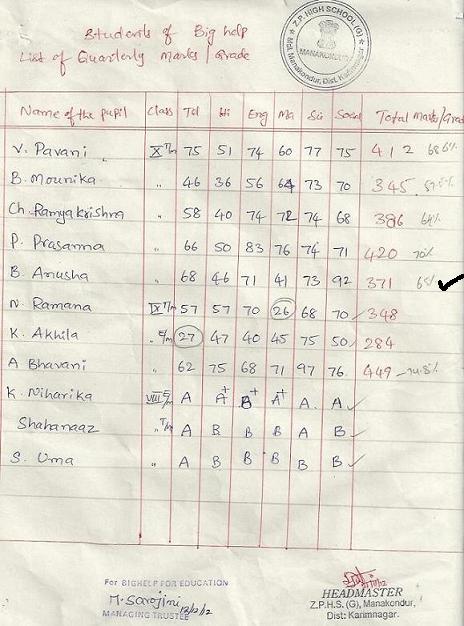 Students of Big help
List of Quarterly Marks / Grade
Z.P. HIGH SCHOOL (G)
MANAKONDUR
Mdl. Manakondur, Dist. Karimnagar.
Name of the pupil Class Tel Hi Eng Ma Sci Social Total Marks/Grade
V. Pavani X T/m 75 51 74 60 77 75 412 68.6%
B. Mounika " 46 36 56 64 73 70 345 57.5%
Ch. Ramyakrishna " 58 40 74 72 74 68 386 64%
P. Prasanna " 66 50 83 76 74 71 420 70%
B. Anusha " 68 46 71 41 73 92 371 65%
N. Ramana IX T/m 57 57 70 26 68 70 348
K. Akhila " E/m 27 47 40 45 75 50 284
A Bhavani " 62 75 68 71 97 76 449 74.8%
K. Niharika VIII E/m A A+ B+ A+ A A
Shahanaaz " T/m A B B B A B
S. Uma " A B B B B B
For BIGHELP FOR EDUCATION
M. Sarojini 12/2/12
MANAGING TRUSTEE
HEADMASTER
Z.P.H.S. (G), Manakondur,
Dist: Karimnagar.